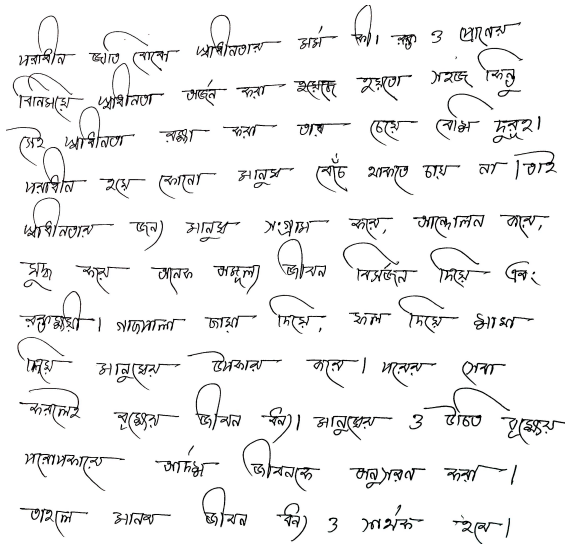 পরাধীন জাতি বোঝে স্বাধীনতার মর্ম কী। রক্ত ও প্রাণের
বিনিময়ে স্বাধীনতা অর্জন করা হয়তো সহজ কিন্তু
সেই স্বাধীনতা রক্ষা করা তার চেয়ে বেশি দুরূহ।
পরাধীন হয়ে কোনো মানুষ বেঁচে থাকতে চায় না। তাই
স্বাধীনতার জন্য মানুষ সংগ্রাম করে, আন্দোলন করে,
যুদ্ধ করে অনেক অমূল্য জীবন বিসর্জন দিয়ে এবং
রক্তক্ষয়ী। গাছপালা ছায়া দিয়ে, ফল দিয়ে শাখা
দিয়ে মানুষের উপকার করে। পরের সেবা
করলেই বৃক্ষের জীবন ধন্য। মানুষের ও উচিত বৃক্ষের
পরোপকারে আদর্শ জীবনকে অনুসরণ করা।
তাহলে মানব জীবন ধন্য ও সার্থক হবে।